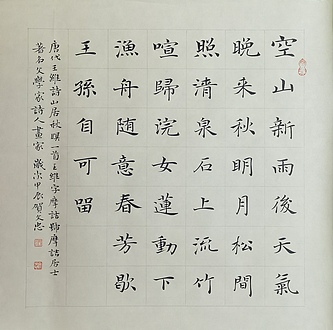 空山新雨後天氣
晚来秋明月松間
照清泉石上流竹
喧歸浣女蓮動下
漁舟随意春芳歇
王孫自可留
唐代王維詩山居秋暝一首王維字摩詰號摩詰居士
著名文學家詩人畫家 歲次甲辰賀文忠